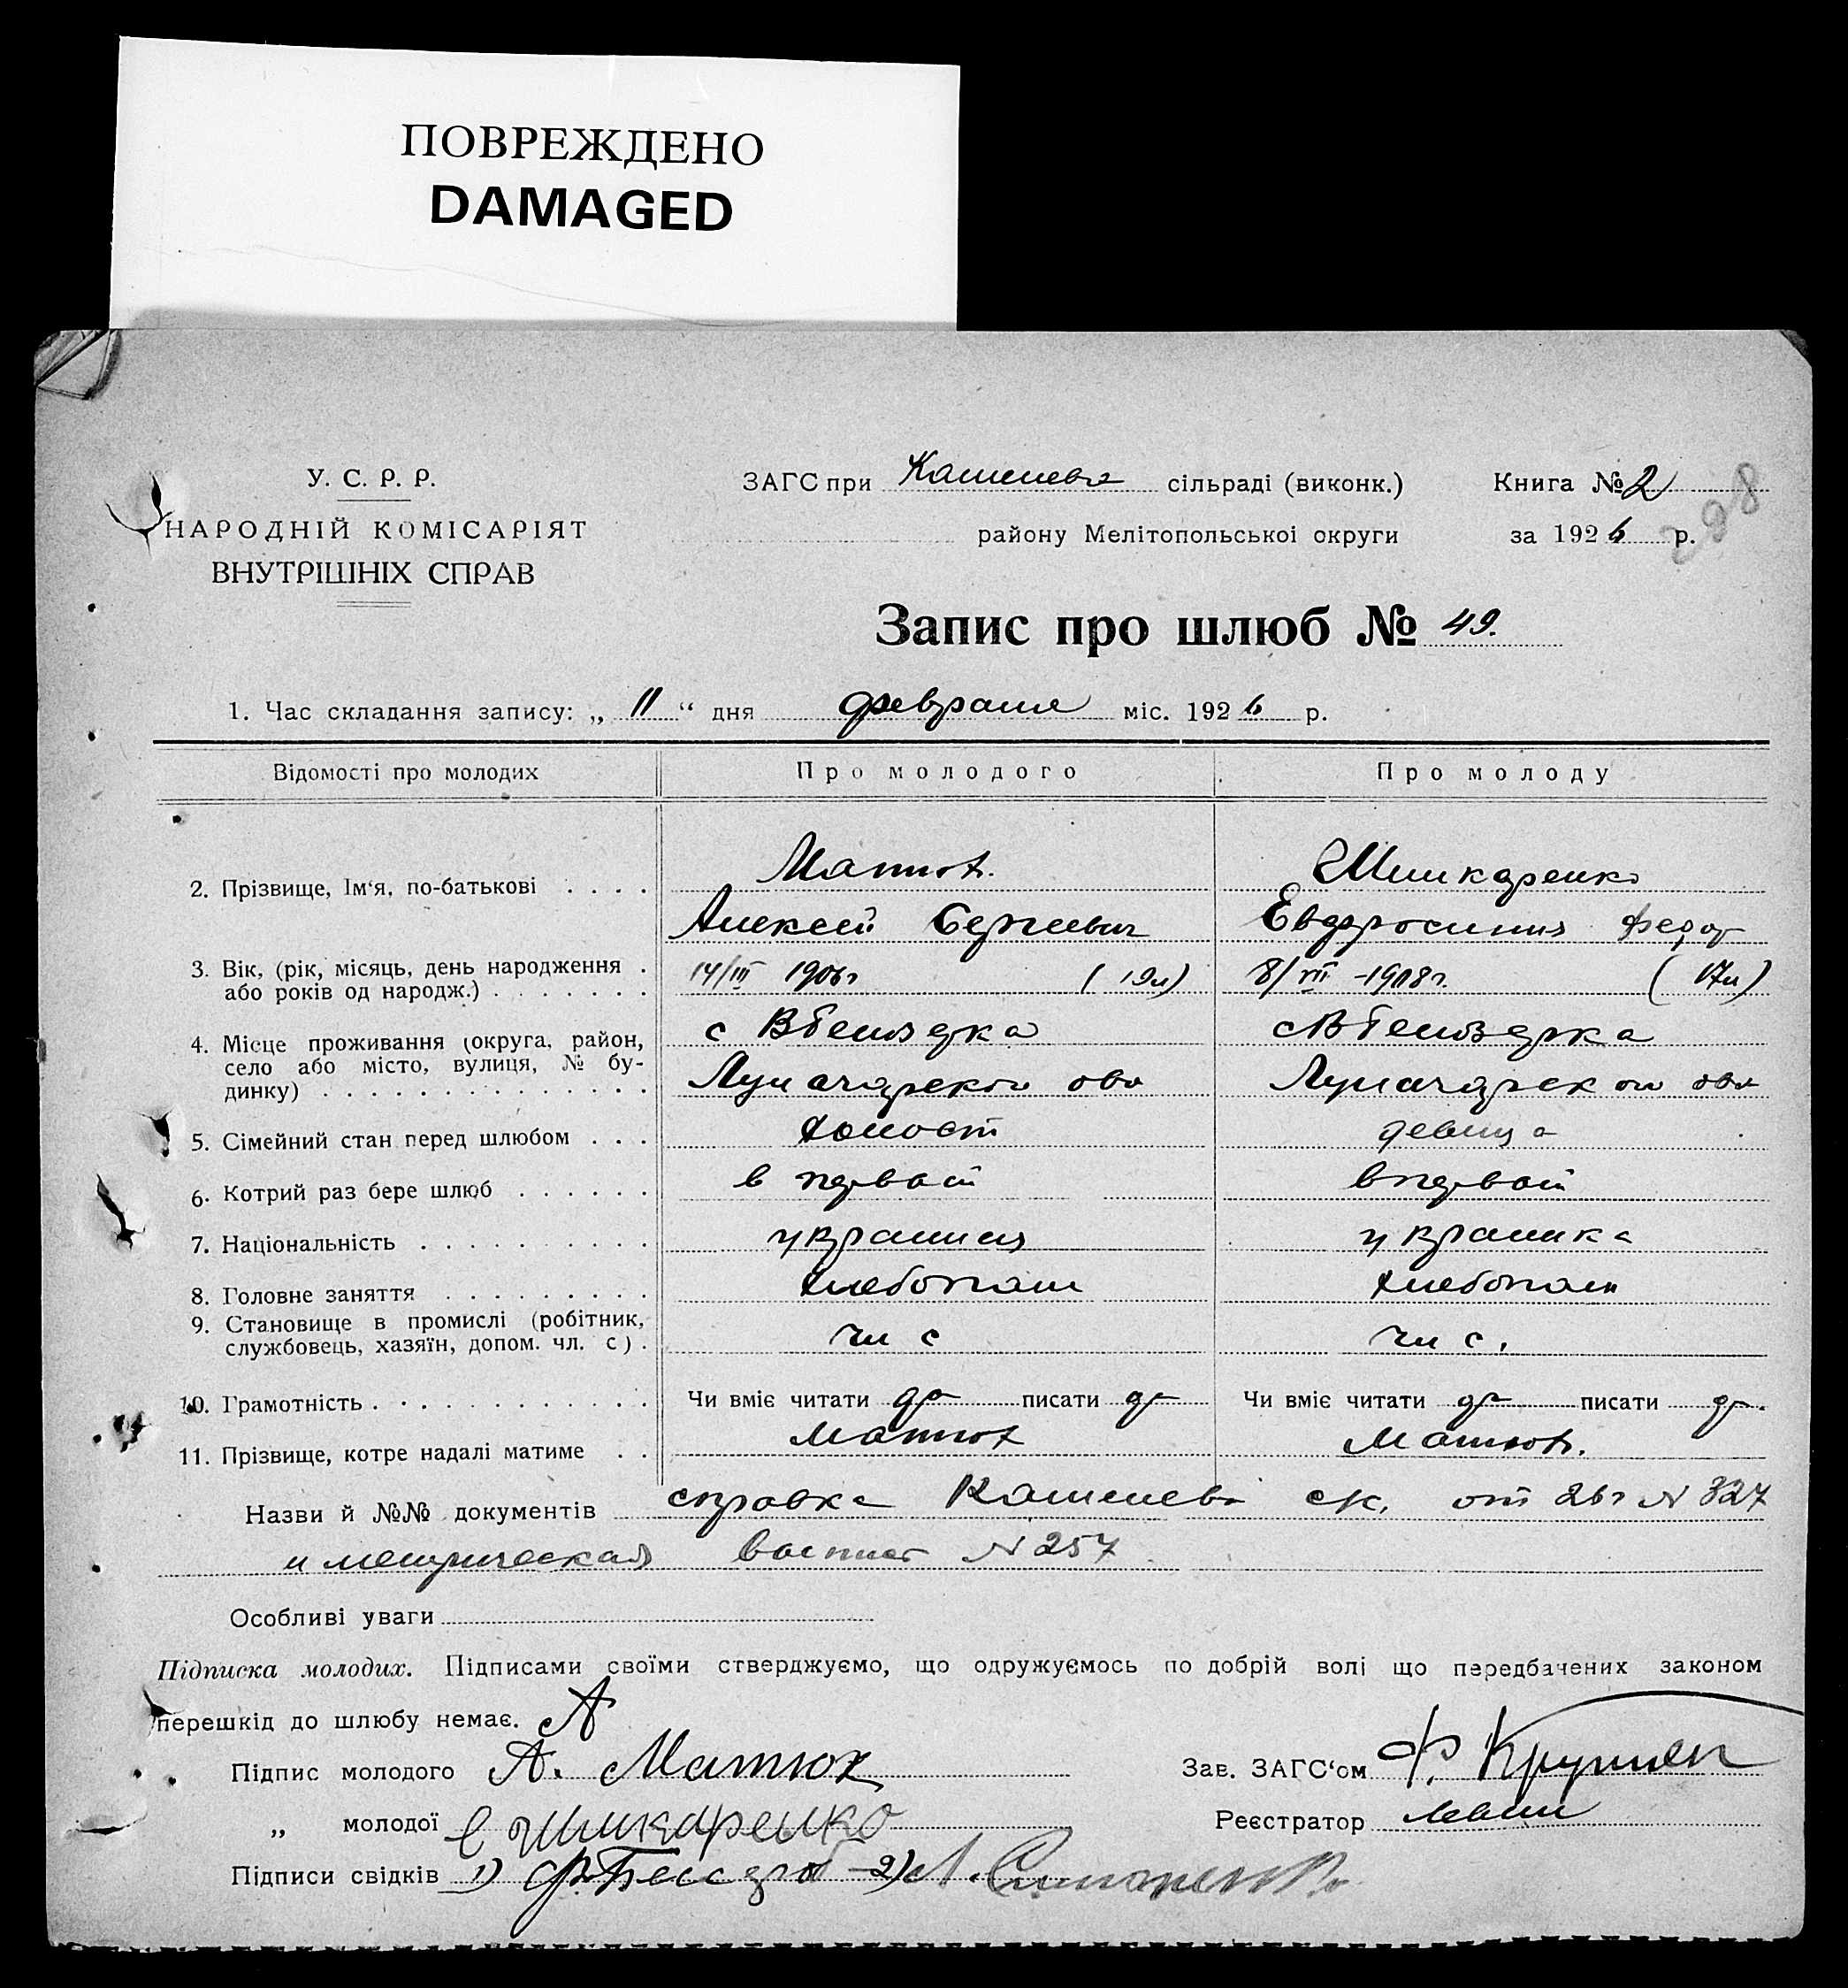 ПОВРЕЖДЕНО
DAMAGED
У. С. Р. Р.
НАРОДНІЙ КОМІСАРІЯТ
ВНУТРІШНІХ СПРАВ
ЗАГС при сільраді (виконк.)
району Мелітопольської округи
Книга № 2
за 1926 р.
298
Запис про шлюб № 49.
1. Час складання запису: „ 11 “ дня февраля міс. 1926 р.
Відомості про молодих Про молодого Про молоду
2. Прізвище, Ім‘я, по-батькові . . . . Матюх. Шишкаренко
Алексей Сергеевич Евдросиния Федор
3. Вік, (рік, місяць, день народження . 14/III 1906г (19л) 8/VII -1908г. (17л)
або років од народж.) . . . . . . .
4. Місце проживання (округа, район, с В Белозерка с В Белозерка
село або місто, вулиця, № бу-
динку) . . . . . . . . . . . . . Луначарского Луначарского
5. Сімейний стан перед шлюбом . . . холост девица
6. Котрий раз бере шлюб . . . . . . в первой в первой
7. Національність . . . . . . . . . . украинец украинка
8. Головне заняття . . . . . . . . . хлебопаш хлебопаш
9. Становище в промислі (робітник, чл с чл с.
службовець, хазяїн, допом. чл. с) .
10. Грамотність . . . . . . . . . . . . Чи вміє читати да писати да Чи вміє читати да писати да.
11. Прізвище, котре надалі матиме . . Матюх Матюх.
Назви й №№ документів справка от 26г № 327
и метрическая № 257
Особливі уваги
Підписка молодих. Підписами своїми стверджуємо, що одружуємось по добрій волі що передбачених законом
перешкід до шлюбу немає. А
Підпис молодого А. Матюх
Зав. ЗАГС‘ом Ф.
„ молодої Е Шишкаренко
Реєстратор
Підписи свідків 1) 2)